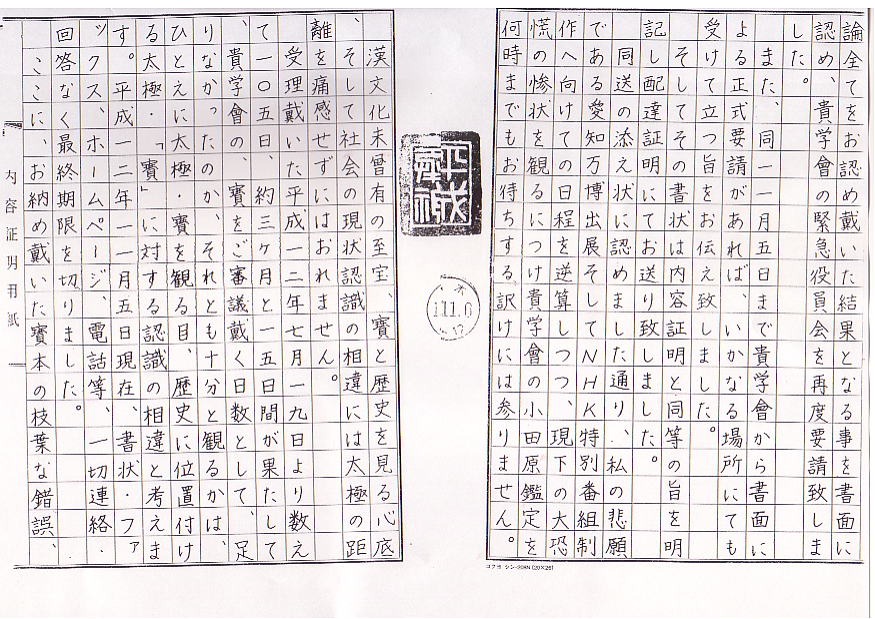 論全てをお認め戴いた結果となる事を書面に
認め、貴学會の緊急役員会を再度要請致しま
した。
また、同一一月五日まで貴学會から書面に
よる正式要請があれば、いかなる場所にても
受けて立つ旨をお伝え致しました。
そしてその書状は内容証明と同等の旨を明
記し配達証明にてお送り致しました。
同送の添え状に認めました通り、私の悲願
である愛知万博出展そしてNHK特別番組制
作へ向けての日程を逆算しつつ、現下の大恐
慌の惨状を観るにつけ貴学會の小田原鑑定を
何時までもお待ちする訳けには参りません。
コクヨ シン-208N (20×26)
漢文化未曾有の至宝、寶と歴史を見る心底
、そして社会の現状認識の相違には太極の距
離を痛感せずにはおれません。
受理戴いた平成一二年七月一九日より数え
て一〇五日、約三ヶ月と一五日間が果たして
、貴学會の、寶をご審議戴く日数として、足
りなかったのか、それとも十分と観るかは、
ひとえに太極・寶を観る目、歴史に位置付け
る太極・「寶」に対する認識の相違と考えま
す。平成一二年一一月五日現在、書状・ファ
ックス、ホームページ、電話等、一切連絡・
回答なく最終期限を切りました。
ここに、お納め戴いた寶本の枝葉な錯誤、
内容証明用紙